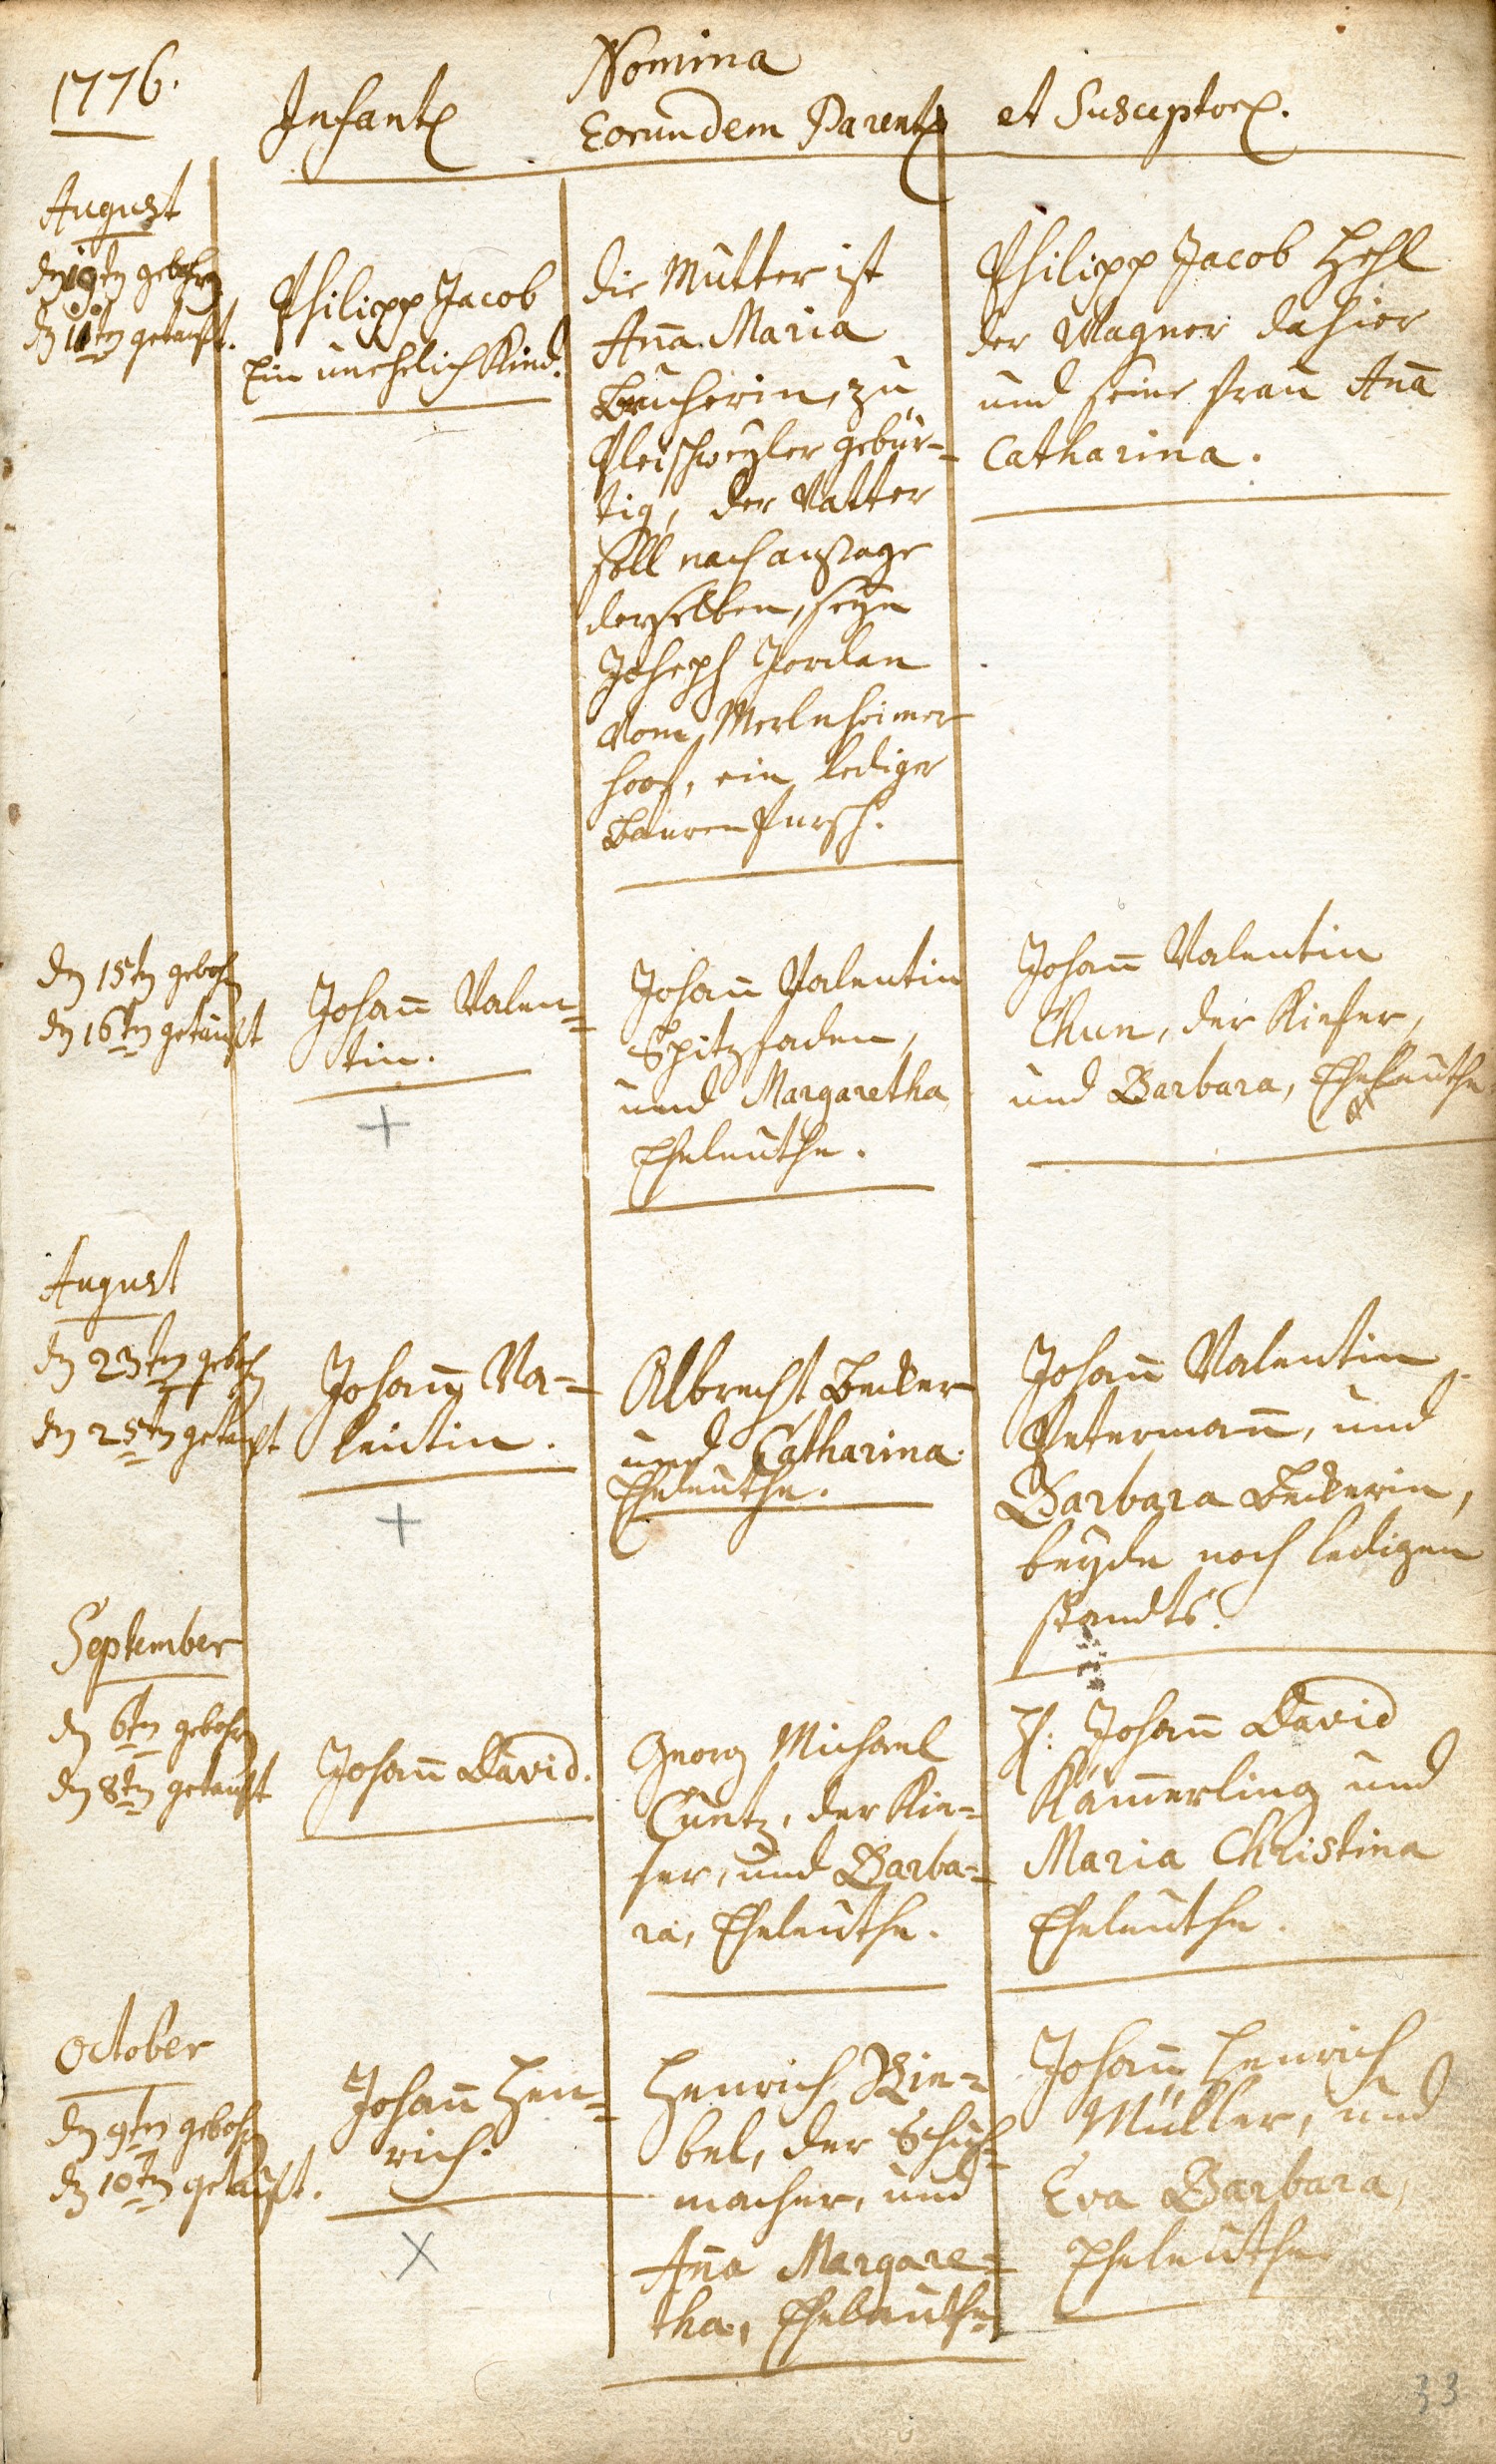 1776.
Nomina
Infant
Eorundem Parent
et Susceptor.
August
den 10ten gebohrn
den 11ten getauft.
Philipp Jacob
Ein unehelich Kind.
die Mutter ist
Anna Maria
Bucherin, zu
Pleischweyler gebür-
tig, der Vatter
soll nach außage
derselben, seyn
Joseph Jordan
vom Merlnheimer
hoof, ein lediger
Bauren Pursch.
Philipp Jacob Hehl
der Wagner dahier
und seine Frau Anna
Catharina.
den 15ten gebohrn
den 16ten getauft
Johann Valen=
tin.
Johann Valentin
Spitzfaden,
und Margaretha
Eheleuthe.
Johann Valentin
Chun, der Kiefer,
und Barbara, Eheleuthe
August
den 23ten gebohrn
den 25ten getauft
Johann Va=
lentin.
Albrecht Becker
und Catharina
Eheleuthe.
Johann Valentin
Petermann, und
Barbara Beckerin,
beyde noch ledigen
standts.
September
den 6ten gebohrn
den 8ten getauft
Johann David.
Georg Michael
Cuntz, der Kie=
fer, und Barba=
ra, Eheleuthe.
H: Johann David
Kämmerling und
Maria Christina
Eheleuthe.
October
den 9ten gebohrn
den 10ten getauft.
Johann Hen=
rich.
Henrich Rie=
bel, der Schuh=
macher, und
Anna Margare=
tha, Eheleuthe.
Johann Henrich
Müller, und
Eva Barbara,
Eheleuthe
33